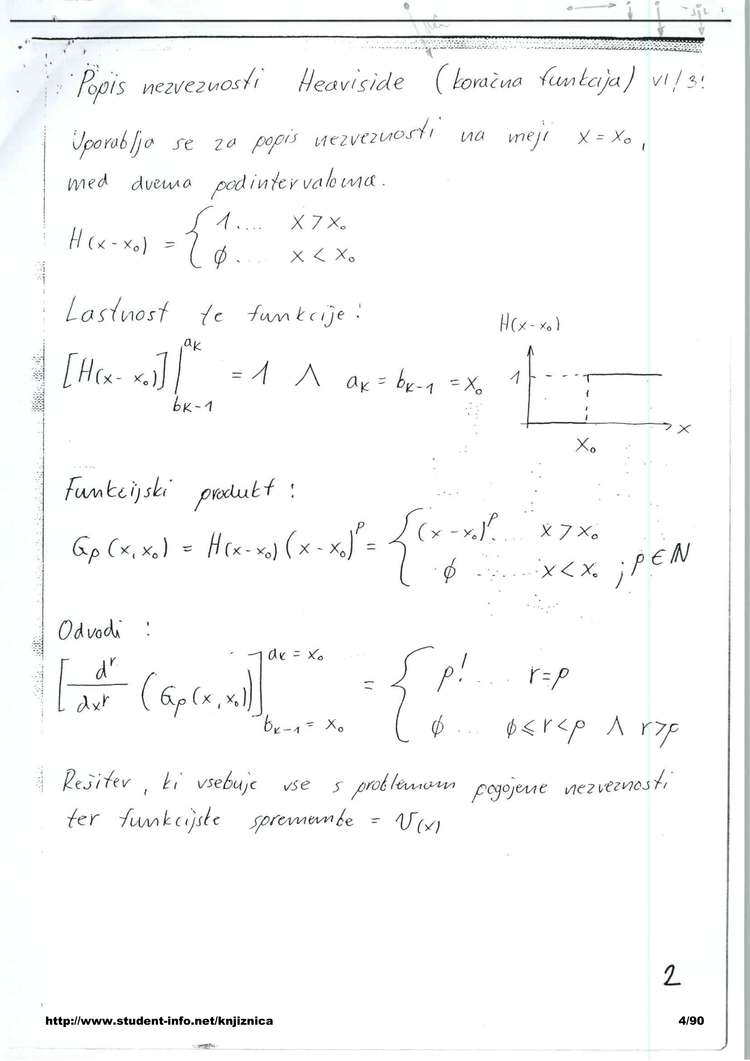 Popis nezveznosti Heaviside (koračna funkcija) VI/3!
Uporablja se za popis nezveznosti na meji x = x₀,
med dvema podintervaloma.
H(x-x₀) = { 1.... x > x₀
∅.... x < x₀
Lastnost te funkcije:
[H(x-x₀)] |_{bK-1}^{aK} = 1 ∧ aK = bK-1 = x₀
H(x-x₀)
1
x
x₀
Funkcijski produkt:
Gp(x,x₀) = H(x-x₀)(x-x₀)^p = { (x-x₀)^p.... x > x₀
∅ ........ x < x₀ ; p ∈ ℕ
Odvodi:
[d^r/dx^r (Gp(x,x₀))]_{bK-1 = x₀}^{aK = x₀} = { p! .... r=p
∅ ... ∅ ≤ r < p ∧ r > p
Rešitev, ki vsebuje vse s problemom pogojene nezveznosti
ter funkcijske spremembe = V(x)
2
http://www.student-info.net/knjiznica 4/90